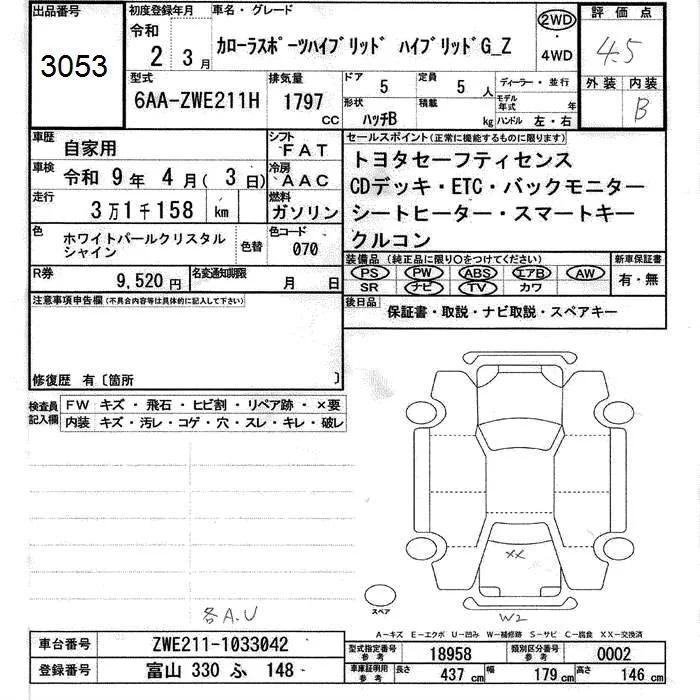 出品番号
3053
初度登録年月
令和
2 3月
車名・グレード
カローラスポーツハイブリッド ハイブリッドG_Z
2WD
・
4WD
評価点
4.5
外装 内装
B
型式
6AA-ZWE211H
排気量
1797
CC
ドア
5
定員
5 人
形状
ハッチB
積載
kg
ディーラー・並行
モデル年式 年
ハンドル 左・右
車歴
自家用
シフト
FAT
車検
令和 9年 4月( 3日)
冷房
AAC
走行
3万1千158 km
燃料
ガソリン
色
ホワイトパールクリスタル
シャイン
色替
色コード
070
R券
9,520円
名変通知期限
月 日
セールスポイント(正常に機能するものに限ります)
トヨタセーフティセンス
CDデッキ・ETC・バックモニター
シートヒーター・スマートキー
クルコン
装備品(純正品に限り○をつけてください)
PS PW ABS エアB AW
SR ナビ TV カワ
新車保証書
有・無
後日品
保証書・取説・ナビ取説・スペアキー
注意事項申告欄(不具合内容等は具体的に記入して下さい)
修復歴 有〔箇所 〕
検査員
記入欄
FW キズ・飛石・ヒビ割・リペア跡・×要
内装 キズ・汚レ・コゲ・穴・スレ・キレ・破レ
各A.U
XX
スペア
W2
A−キズ E−エクボ U−凹み W−補修跡 S−サビ C−腐食 XX−交換済
車台番号
ZWE211-1033042
登録番号
富山 330 ふ 148
型式指定番号
参考
18958
類別区分番号
参考
0002
車庫証明用
参考
長さ
437 cm
幅
179 cm
高さ
146 cm